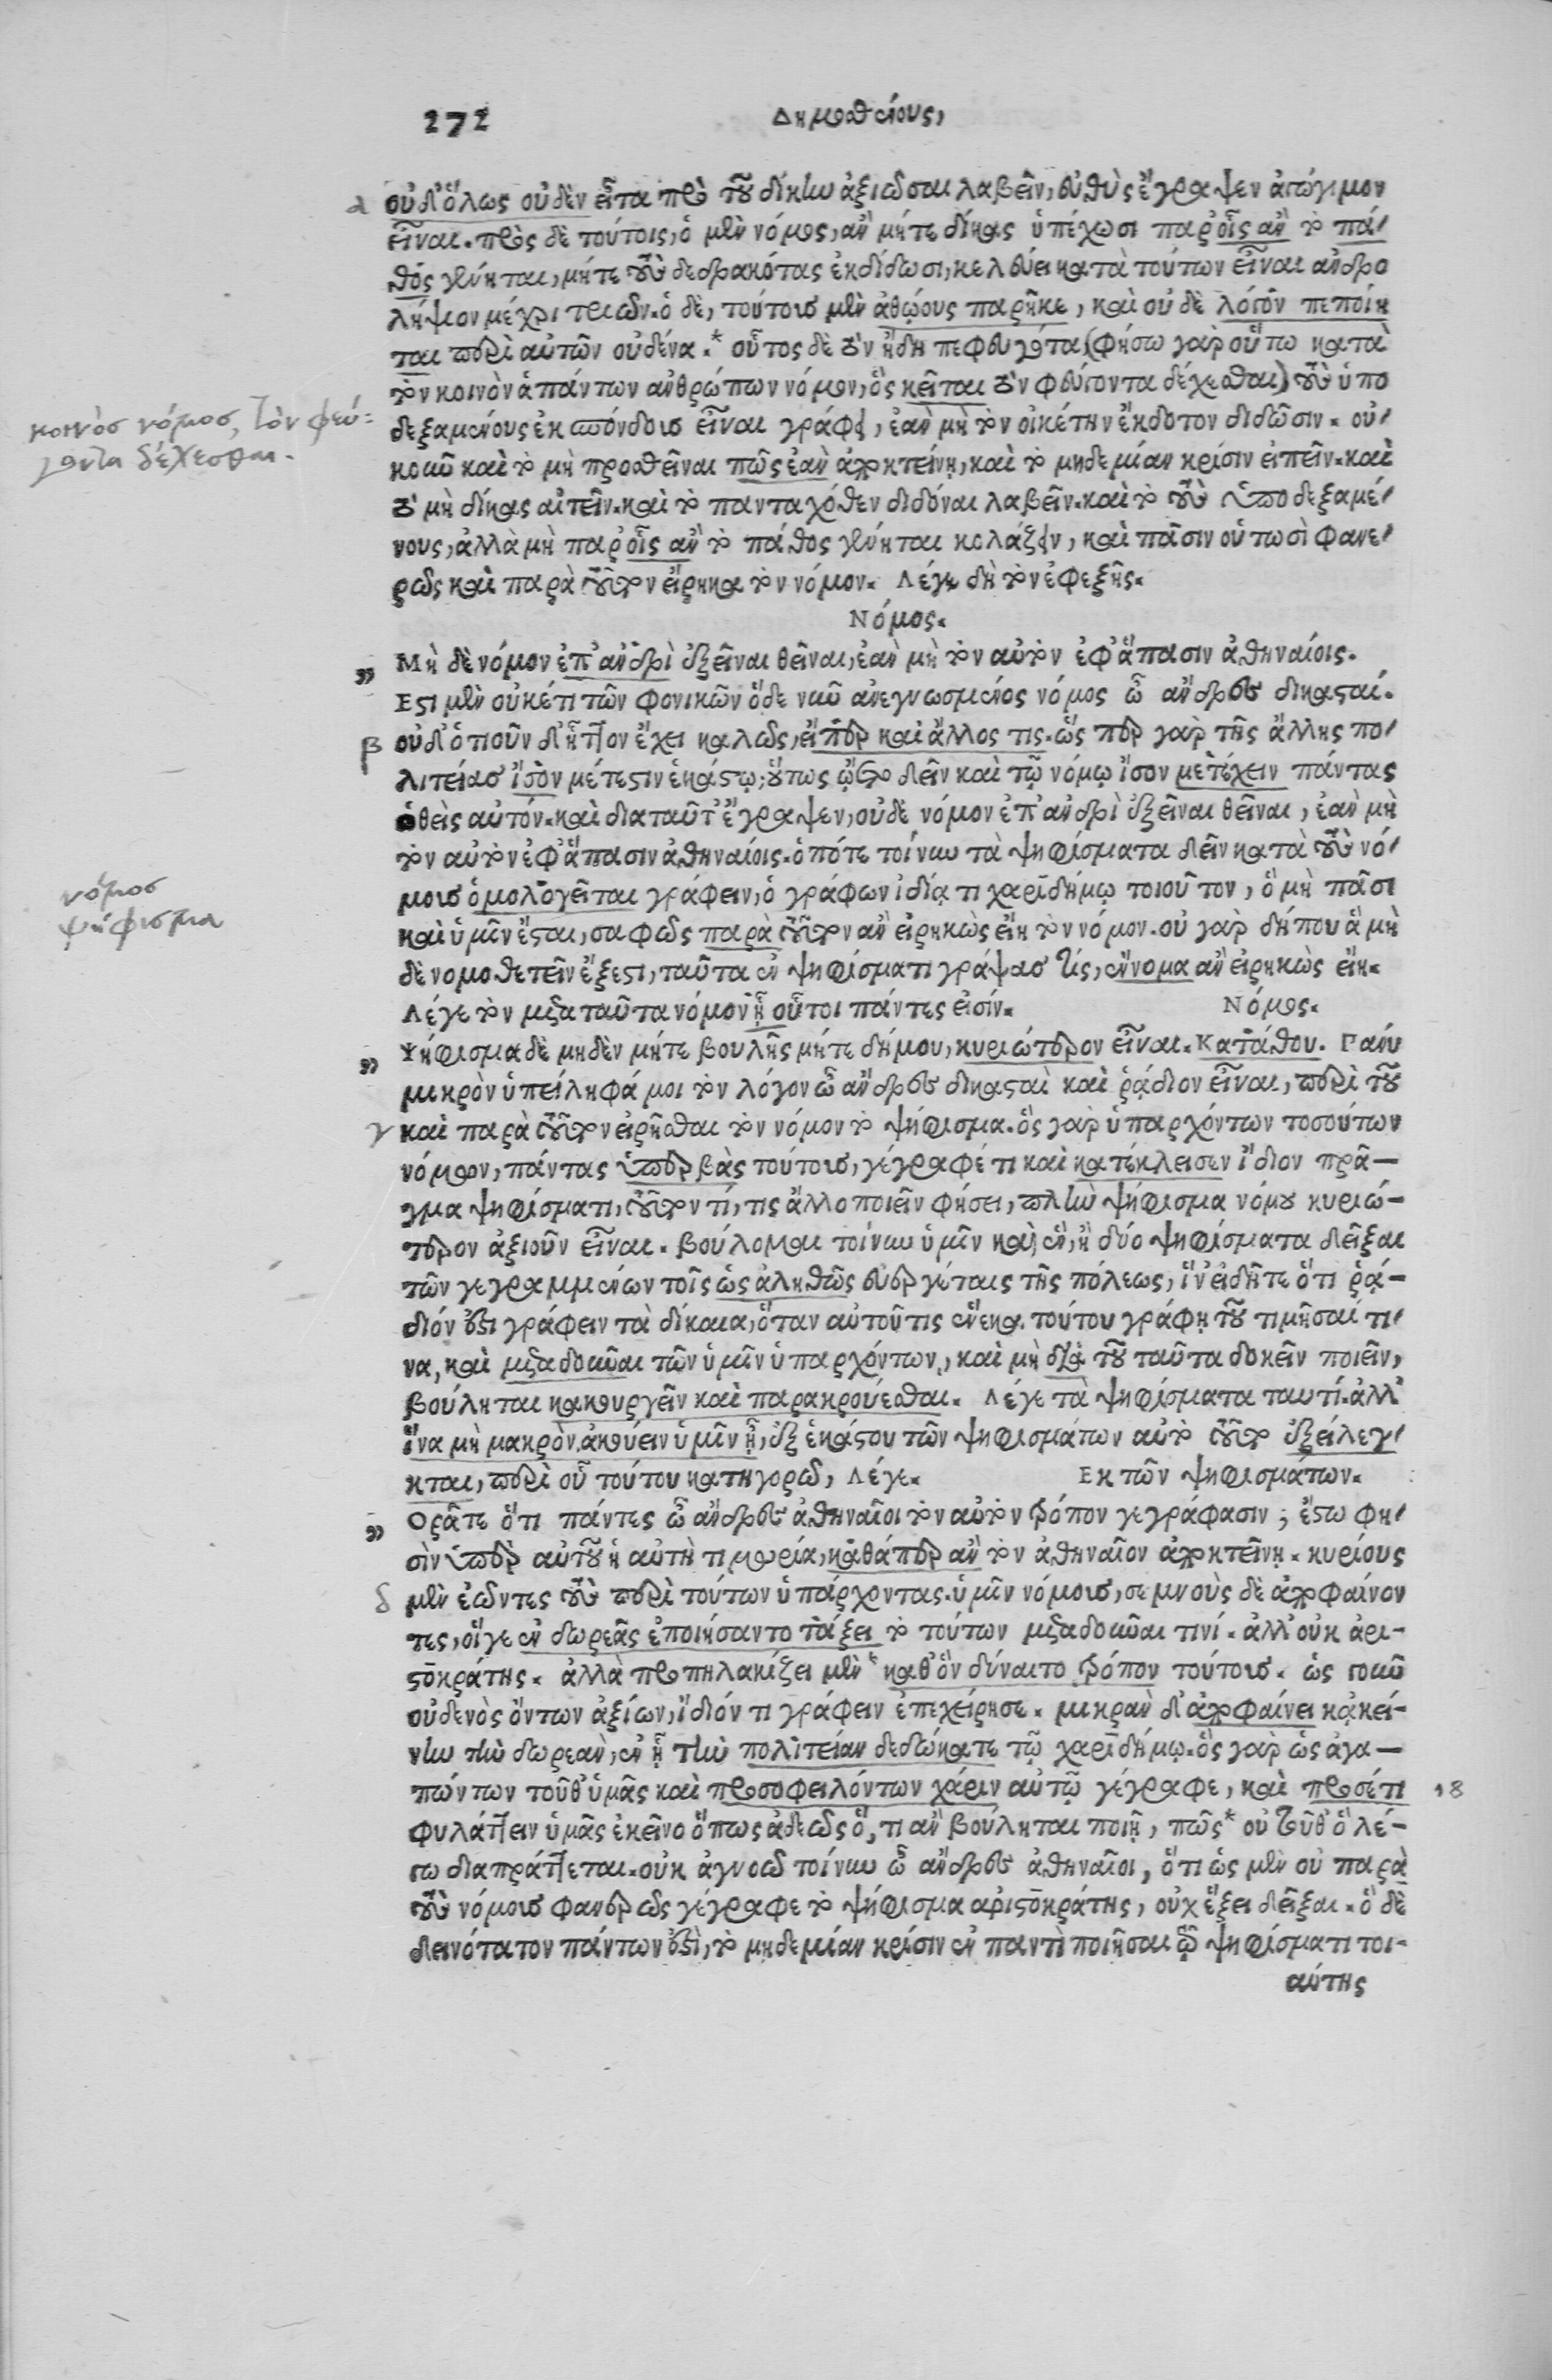 272
Δημοσθένους,
α οὐδ' ὅλως οὐδὲν εἶτα πρὸ τοῦ δίκην ἀξιῶσαι λαβεῖν, εὐθὺς ἔγραψεν ἀγώγιμον
εἶναι. πρὸς δὲ τούτοις, ὁ μὲν νόμος, ἂν μήτε δίκας ὑπέχωσι παρ' οἷς ἂν τὸ πά/
θος γένηται, μήτε τοὺς δεδρακότας ἐκδίδωσι, κελεύει κατὰ τούτων εἶναι ἀνδρο
λήψιον μέχρι τριῶν. ὁ δὲ, τούτους μὲν ἀθῴους παρῆκε, καὶ οὐδὲ λόγον πεποίη
ται περὶ αὐτῶν οὐδένα.* οὗτος δὲ τὸν ἤδη πεφευγότα (φήσω γὰρ οὕτω κατὰ
τὸν κοινὸν ἁπάντων ἀνθρώπων νόμον, ὃς κεῖται τὸν φεύγοντα δέχεσθαι) τοὺς ὑπο
κοινὸσ νόμοσ, τὸν φεύ:
γοντα δέχεσθαι.
δεξαμένους ἐκσπόνδους εἶναι γράφει, ἐὰν μὴ τὸν οἰκέτην ἔκδοτον διδῶσιν. οὐ/
κοῦν καὶ τὸ μὴ προσθεῖναι πῶς ἐὰν ἀποκτείνῃ, καὶ τὸ μηδεμίαν κρίσιν εἰπεῖν. καὶ
τὸ μὴ δίκας αἰτεῖν. καὶ τὸ πανταχόθεν διδόναι λαβεῖν. καὶ τὸ τοὺς ὑποδεξαμέ/
νους, ἀλλὰ μὴ παρ' οἷς ἂν τὸ πάθος γένηται κολάζειν, καὶ πᾶσιν οὑτωσὶ φανε/
ρῶς καὶ παρὰ τοῦτον εἴρηκα τὸν νόμον. Λέγε δὴ τὸν ἐφεξῆς.
Νόμος.
„ Μὴ δὲ νόμον ἐπ' ἀνδρὶ ἐξεῖναι θεῖναι, ἐὰν μὴ τὸν αὐτὸν ἐφ' ἅπασιν ἀθηναίοις.
Εστι μὲν οὐκέτι τῶν φονικῶν ὅδε νῦν ἀνεγνωσμένος νόμος ὦ ἄνδρες δικασταί.
β οὐδ' ὁτιοῦν δ' ἧττον ἔχει καλῶς, εἴπερ καὶ ἄλλος τις. ὥσπερ γὰρ τῆς ἄλλης πο/
λιτείασ ἴσον μέτεστιν ἑκάστῳ, οὕτως ᾤετο δεῖν καὶ τῷ νόμῳ ἴσον μετέχειν πάντας
ὁ θεὶς αὐτόν. καὶ διαταῦτ' ἔγραψεν, οὐδὲ νόμον ἐπ' ἀνδρὶ ἐξεῖναι θεῖναι, ἐὰν μὴ
τὸν αὐτὸν ἐφ' ἅπασιν ἀθηναίοις. ὁπότε τοίνυν τὰ ψηφίσματα δεῖν κατὰ τοὺς νό/
μους ὁμολογεῖται γράφειν, ὁ γράφων ἰδίᾳ τι χαριδήμῳ τοιοῦτον, ὃ μὴ πᾶσι
νόμοσ
ψήφισμα
καὶ ὑμῖν ἔσται, σαφῶς παρὰ τοῦτον ἂν εἰρηκὼς εἴη τὸν νόμον. οὐ γὰρ δήπου ἃ μὴ
δὲ νομοθετεῖν ἔξεστι, ταῦτα ἐν ψηφίσματι γράψασ τις, ἔννομα ἂν εἰρηκὼς εἴη.
Λέγε τὸν μετα ταῦτα νόμον ἢ οὗτοι πάντες εἰσίν. Νόμος.
„ Ψήφισμα δὲ μηδὲν μήτε βουλῆς μήτε δήμου, κυριώτερον εἶναι. Κατάθου. Γάνυ
μικρὸν ὑπείληφά μοι τὸν λόγον ὦ ἄνδρες δικασταὶ καὶ ῥᾴδιον εἶναι, περὶ τοῦ
γ καὶ παρὰ τοῦτον εἰρῆσθαι τὸν νόμον τὸ ψήφισμα. ὃς γὰρ ὑπαρχόντων τοσούτων
νόμων, πάντας ὑπερβὰς τούτους, γέγραφέ τι καὶ κατέκλεισεν ἴδιον πρᾶ-
γμα ψηφίσματι, τοῦτον τί, τις ἄλλο ποιεῖν φήσει, πλὴν ψήφισμα νόμου κυριώ-
τερον ἀξιοῦν εἶναι. βούλομαι τοίνυν ὑμῖν καὶ ἓν, ἢ δύο ψηφίσματα δεῖξαι
τῶν γεγραμμένων τοῖς ὡς ἀληθῶς εὐεργέταις τῆς πόλεως, ἵν' εἰδῆτε ὅτι ῥᾴ-
διόν ἐστι γράφειν τὰ δίκαια, ὅταν αὐτοῦ τις ἕνεκα τούτου γράφῃ τοῦ τιμῆσαί τι/
να, καὶ μεταδοῦναι τῶν ὑμῖν ὑπαρχόντων, καὶ μὴ διὰ τοῦ ταῦτα δοκεῖν ποιεῖν,
βούληται κακουργεῖν καὶ παρακρούεσθαι. Λέγε τὰ ψηφίσματα ταυτί. ἀλλ'
ἵνα μὴ μακρὸν ἀκούειν ὑμῖν ᾖ, ἐξ ἑκάστου τῶν ψηφισμάτων αὐτὸ τοῦτο ἐξείλεγ/
κται, περὶ οὗ τούτου κατηγορῶ, Λέγε. Εκ τῶν ψηφισμάτων.
„ Ορᾶτε ὅτι πάντες ὦ ἄνδρες ἀθηναῖοι τὸν αὐτὸν τρόπον γεγράφασιν; ἔστω φη/
σὶν ὑπὲρ αὐτοῦ ἡ αὐτὴ τιμωρία, καθάπερ ἂν τὸν ἀθηναῖον ἀποκτείνῃ. κυρίους
δ μὲν ἐῶντες τοὺς περὶ τούτων ὑπάρχοντας ὑμῖν νόμους, σεμνοὺς δὲ ἀποφαίνον
τες, οἵ γε ἐν δωρεᾶς ἐποιήσαντο τάξει τὸ τούτων μεταδοῦναι τινί. ἀλλ' οὐκ ἀρι-
στοκράτης. ἀλλὰ προπηλακίζει μὲν καθ' ὃν δύναιτο τρόπον τούτους. ὡς γοῦν
οὐδενὸς ὄντων ἀξίων, ἴδιόν τι γράφειν ἐπεχείρησε. μικρὰν δ' ἀποφαίνει κἀκεί-
νην τὴν δωρεὰν, ἐν ᾗ τὴν πολιτείαν δεδώκατε τῷ χαριδήμῳ. ὃς γὰρ ὡς ἀγα-
πώντων τοῦθ' ὑμᾶς καὶ προσοφειλόντων χάριν αὐτῷ γέγραφε, καὶ προσέτι 18
φυλάττειν ὑμᾶς ἐκεῖνο ὅπως ἀδεῶς ὅ, τι ἂν βούληται ποιῇ, πῶς* οὐ τοῦθ' ὃ λέ-
γω διαπράττεται. οὐκ ἀγνοῶ τοίνυν ὦ ἄνδρες ἀθηναῖοι, ὅτι ὡς μὲν οὐ παρὰ
τοὺς νόμους φανερῶς γέγραφε τὸ ψήφισμα ἀριστοκράτης, οὐχ ἕξει δεῖξαι. ὃ δὲ
δεινότατον πάντων ἐστὶ, τὸ μηδεμίαν κρίσιν ἐν παντὶ ποιῆσαι τῷ ψηφίσματι τοι-
αύτης